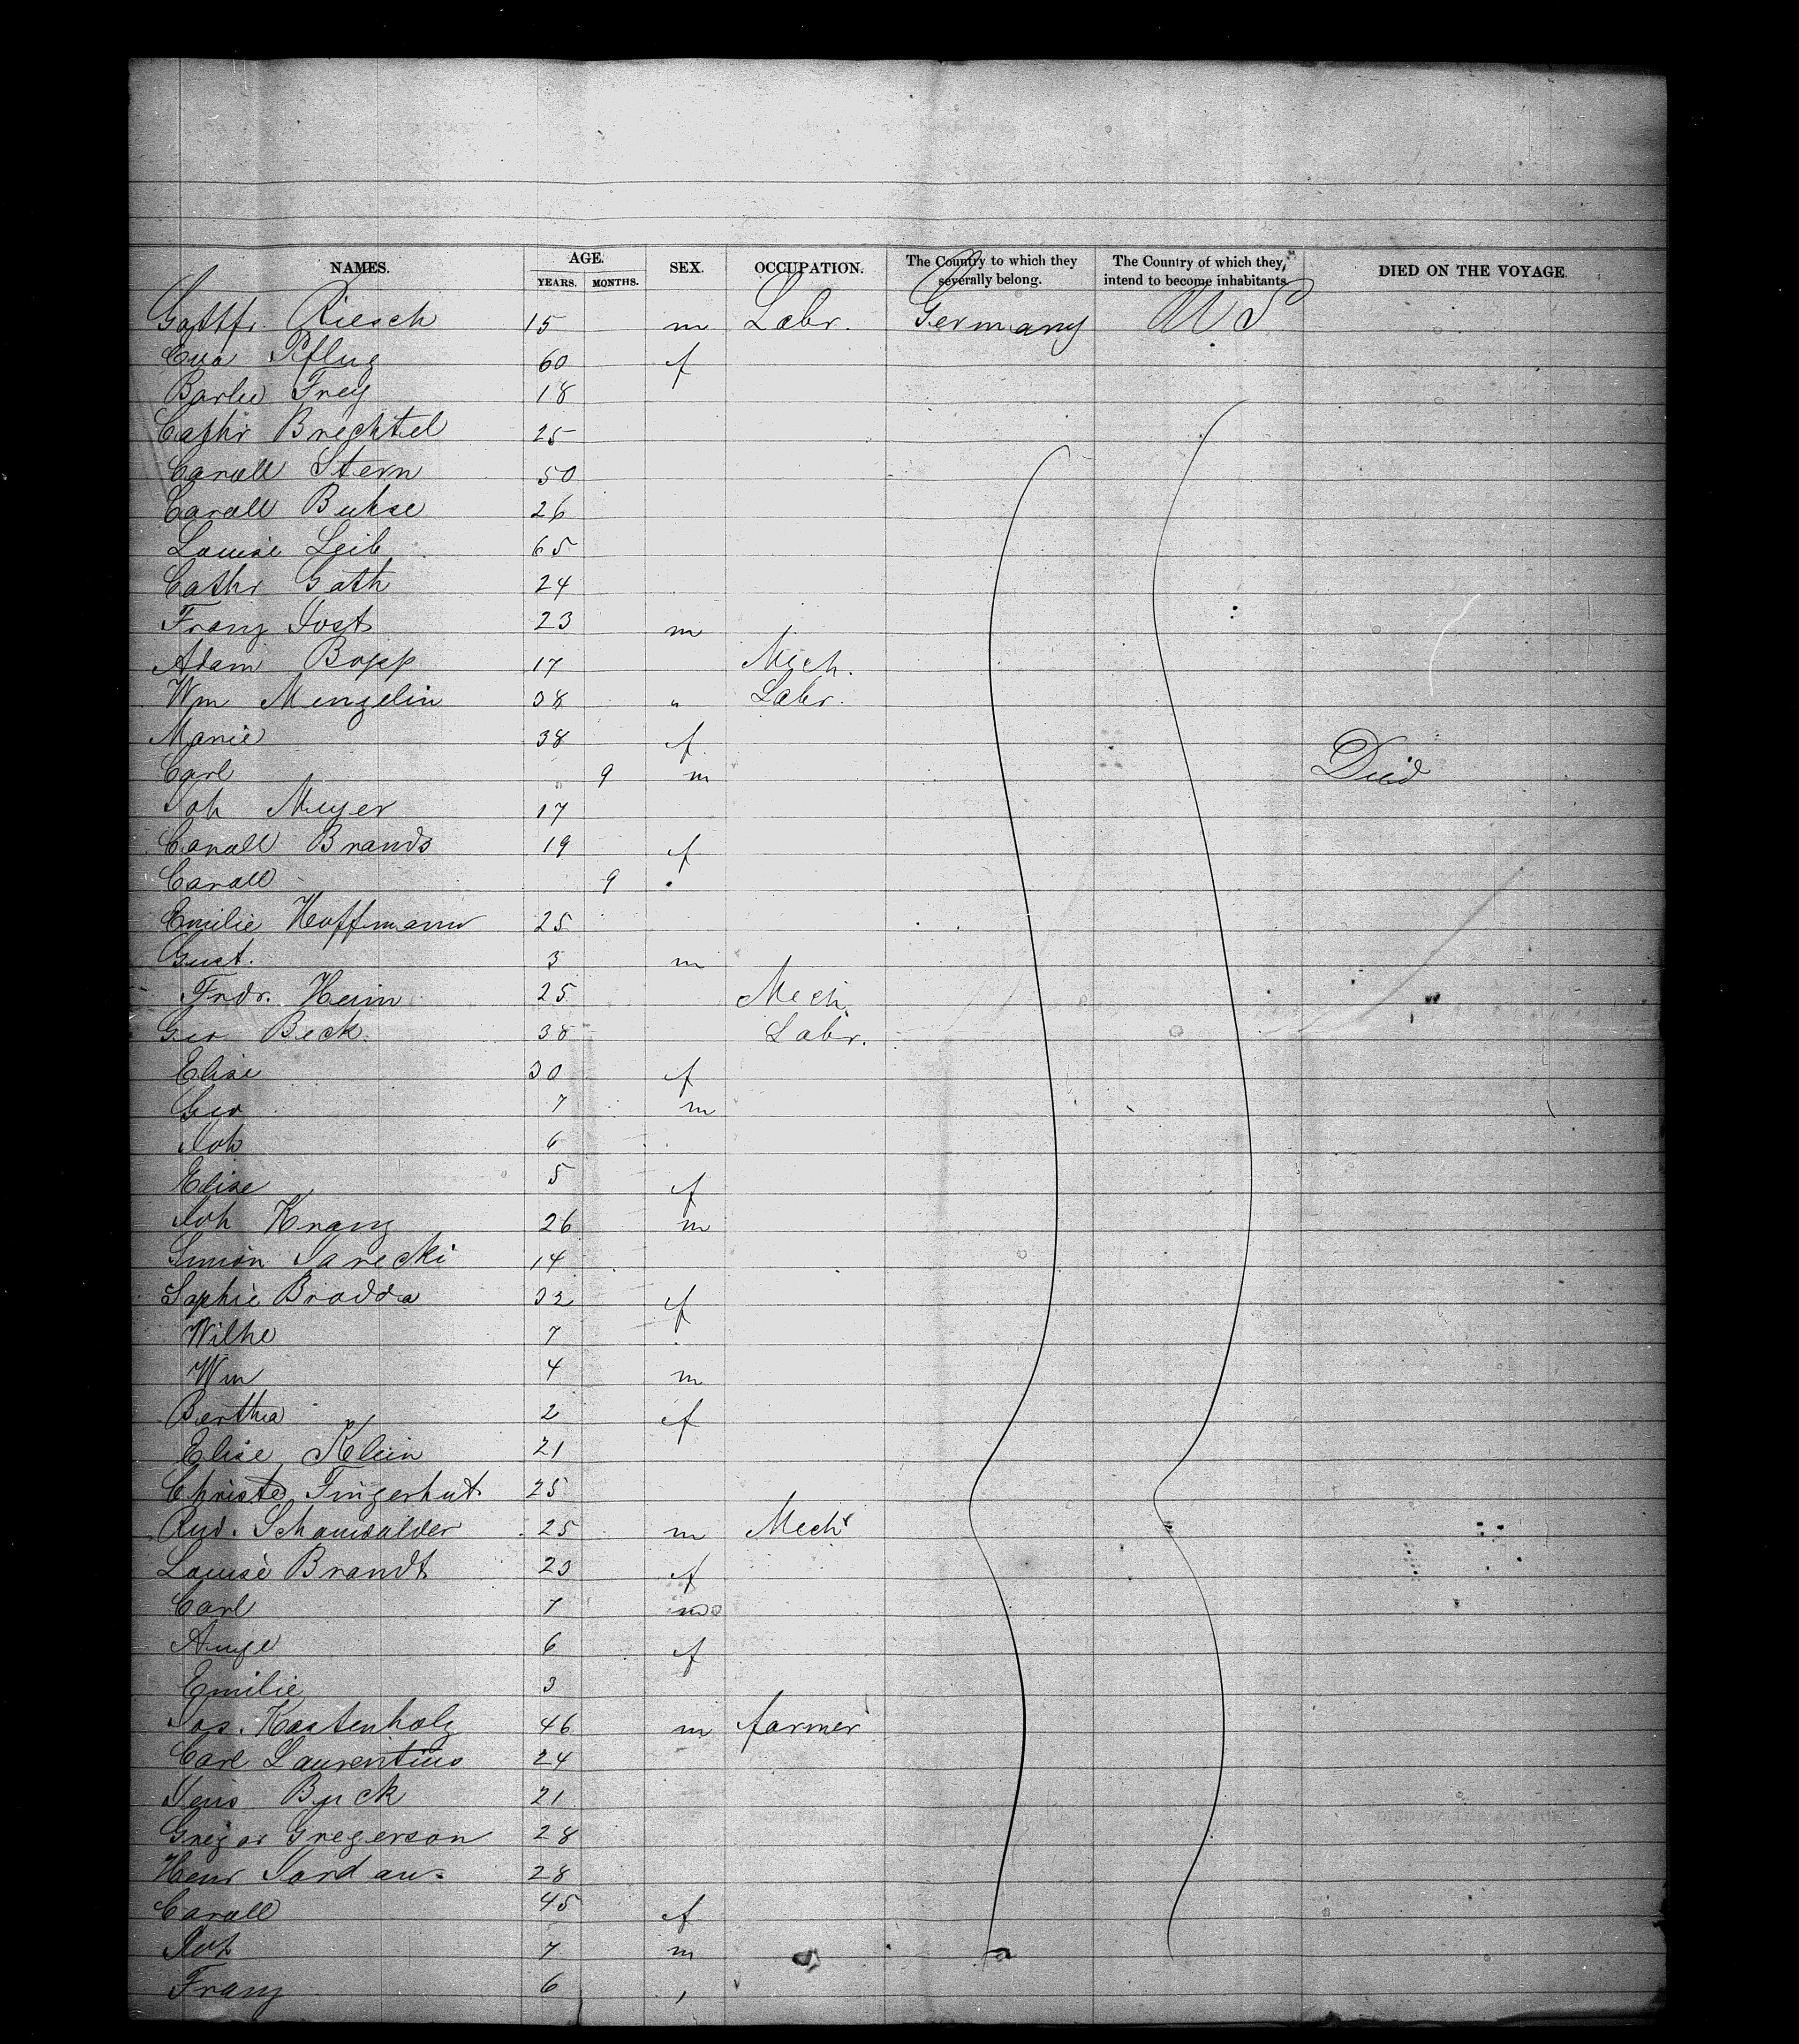 NAMES. AGE. SEX. OCCUPATION. The Country to which they severally belong. The Country of which they, intend to become inhabitants. DIED ON THE VOYAGE.
YEARS. MONTHS.
Gottfr. Riesch 15 m Labr. Germany U S
Eva Pflug 60 f
Frey 18
Cathr Brechtel 25
Caroll Stern 50
Caroll Buhse 26
Louise Leib 65
Cathr Gath 24
Franz Jost 23 m
Adam Bopp 17 Mech.
Wm Mengelin 38 " Labr.
Marie 38 f
Carl 9 m Died
Joh Meyer 17
Caroll Brands 19 f
Caroll 9
Emilie Hoffmann 25
Gust. 3 m
Frdr. Heim 25 Mech.
Geo Beck 38 Labr.
Elise 30 f
Geo 7 m
Joh 6
Elise 5 f
Joh Kranz 26 m
Simon Jarecki 14
Sophie Brodda 32 f
Wilhe 7
Wm 4 m
Bertha 2 f
Elise Klein 21
Christe Fingerhut 25
Rud. 25 m Mech
Louise Brandt 23 f
Carl 7 m
Auge 6 f
Emilie 3
Jos. Kastenholz 46 m farmer
Carl Laurentius 24
Jens Buck 21
Gregor Gregerson 28
Henr Jordan 28
Caroll 45 f
Joh 7 m
Franz 6